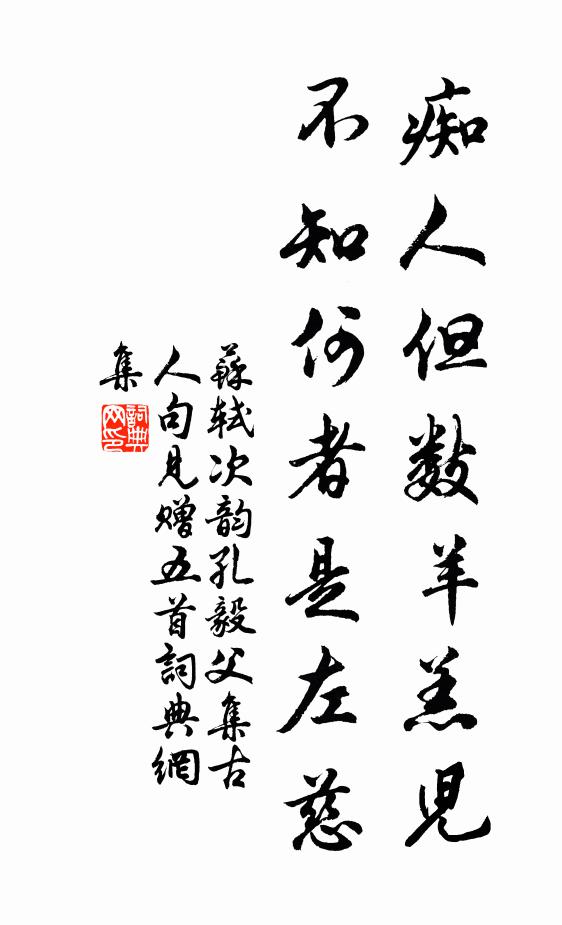 痴人但数羊羔児
不知何者是左慈
蘇軾次韵孔毅父集古
人句見贈五首詞典網
集
詞典网印